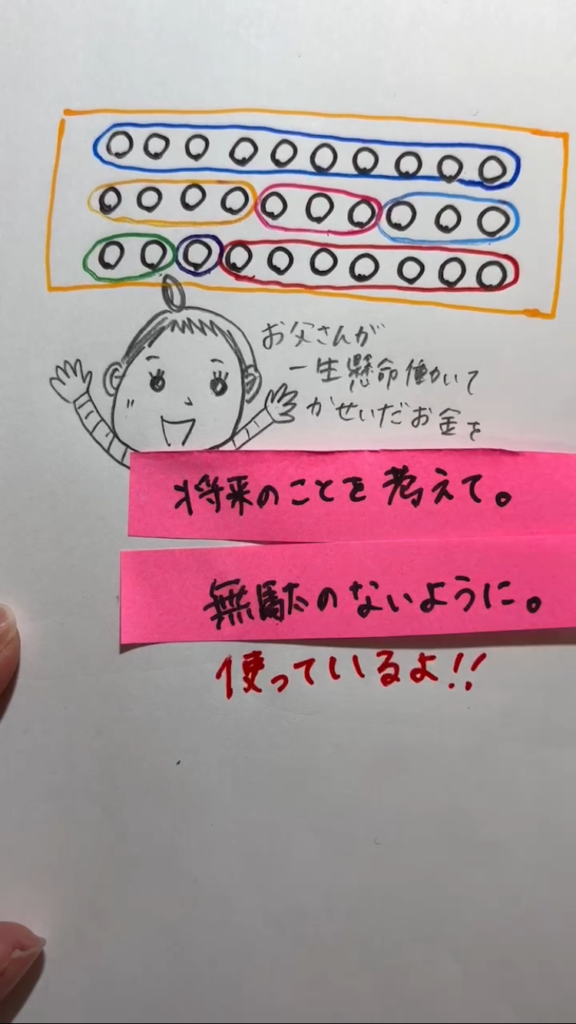 お父さんが
一生懸命働いて
かせいだお金を
将来のことを考えて。
無駄のないように。
使っているよ!!